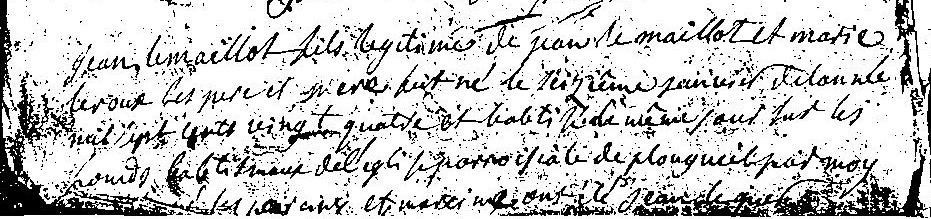 jean lemaillot fils legitime de jean le maillot et marie
leroux ses pere et mere fut né le sixième janvier de lannée
mil sept cents vingt quatre et babtisé le même jour sur les
fonds babtismaux de leglise parroissiale de plougueil par moy
les parains et maraine ont été jean le